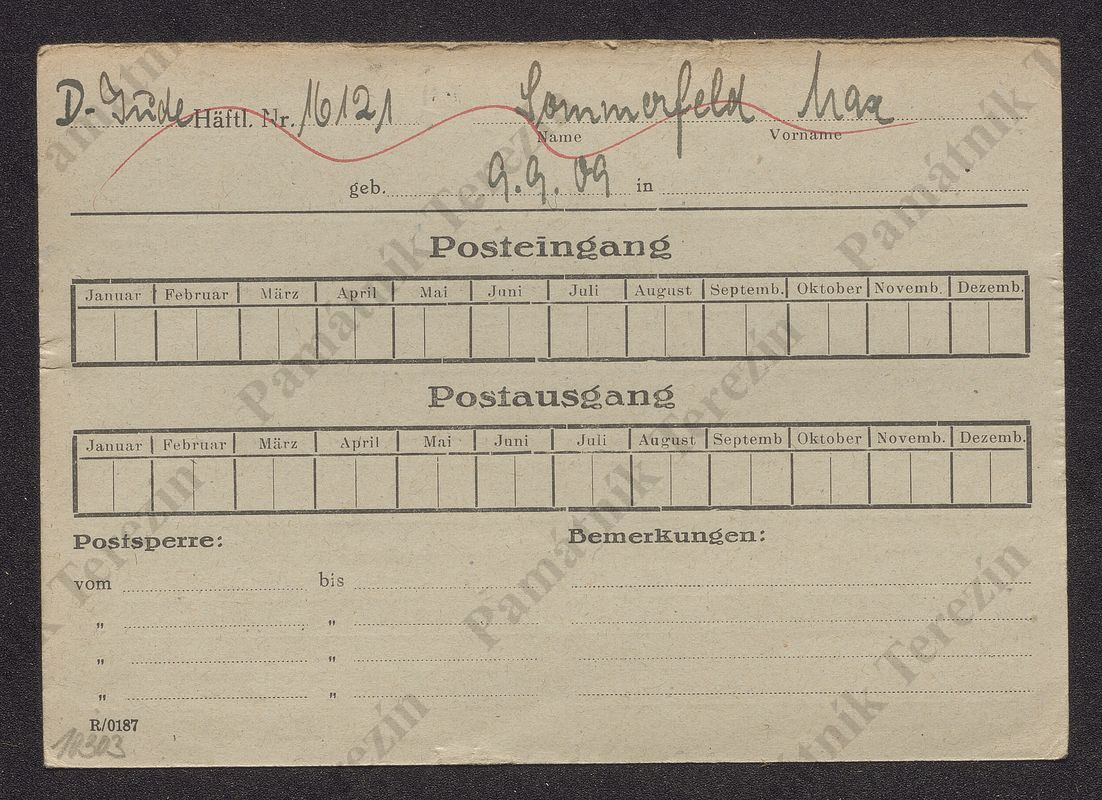 D-Jude Häftl. Nr. 16121 Sommerfeld Max
Name Vorname
geb. 9.9.09 in
Posteingang
Januar Februar März April Mai Juni Juli August Septemb. Oktober Novemb. Dezemb.
Postausgang
Januar Februar März April Mai Juni Juli August Septemb Oktober Novemb. Dezemb.
Postsperre: Bemerkungen:
vom bis
" "
" "
" "
R/0187
10303
Památník Terezín